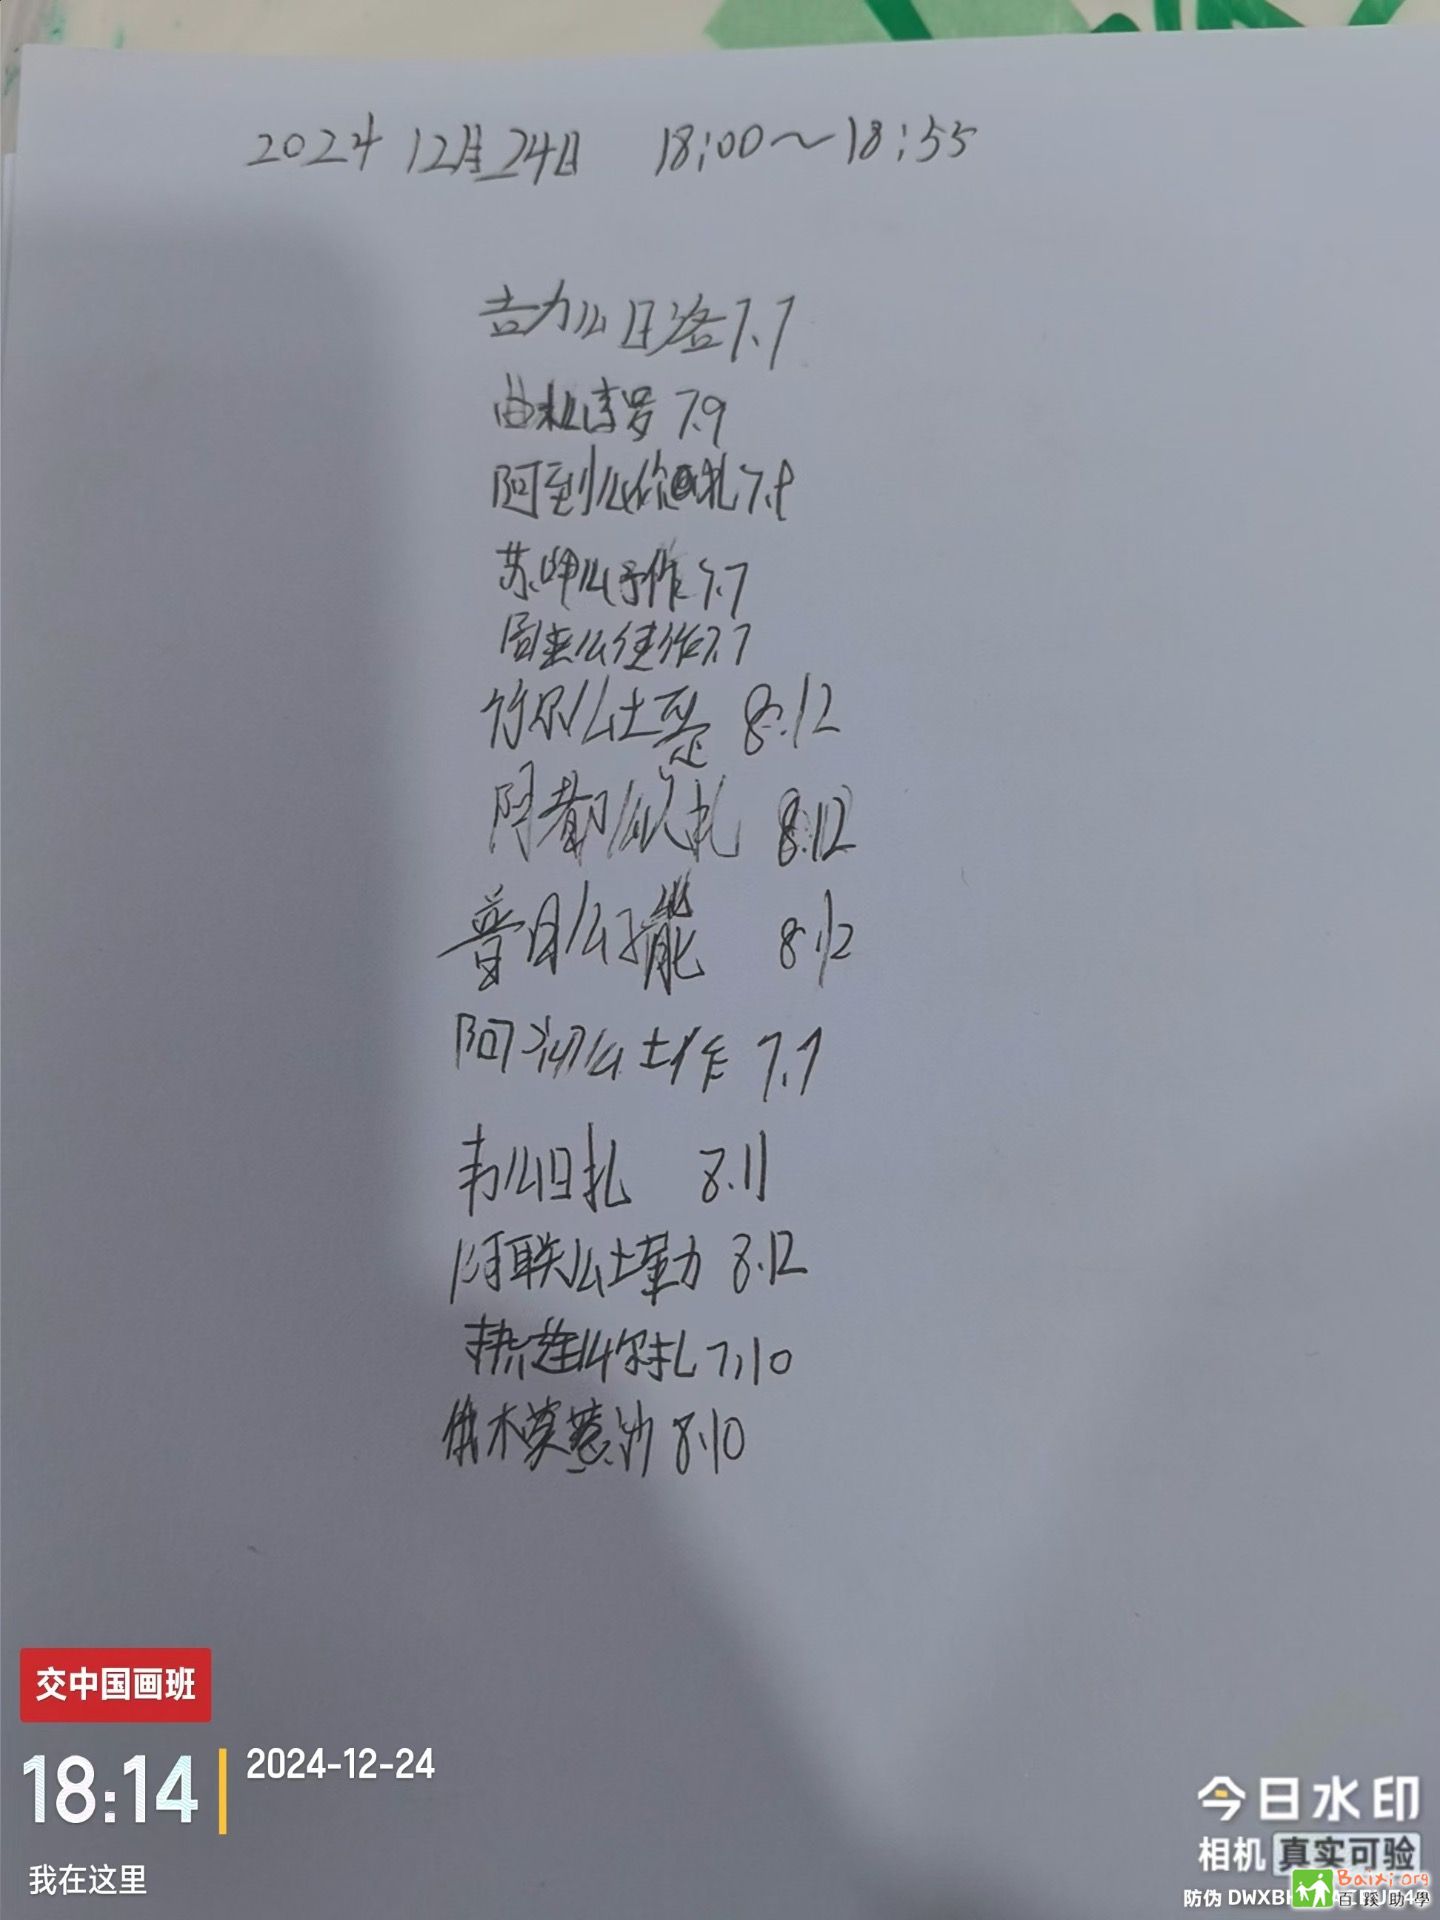 2024 12月24日 18:00～18:55
吉力么日洛7.7
曲 7.9
阿到么你 札7.8
苏呷么子作7.7
么佳作7.7
竹尔么土 8.12
阿都么 札 8.12
普日么子能 8.12
阿 么土作 7.7
韦么日扎 8.11
阿联么土勤 8.12
热连么尔扎7.10
俄木莫惹沙8.10
交中国画班
18:14
2024-12-24
我在这里
今日水印
相机 真实可验
防伪
Baixi.org
百蹊助學